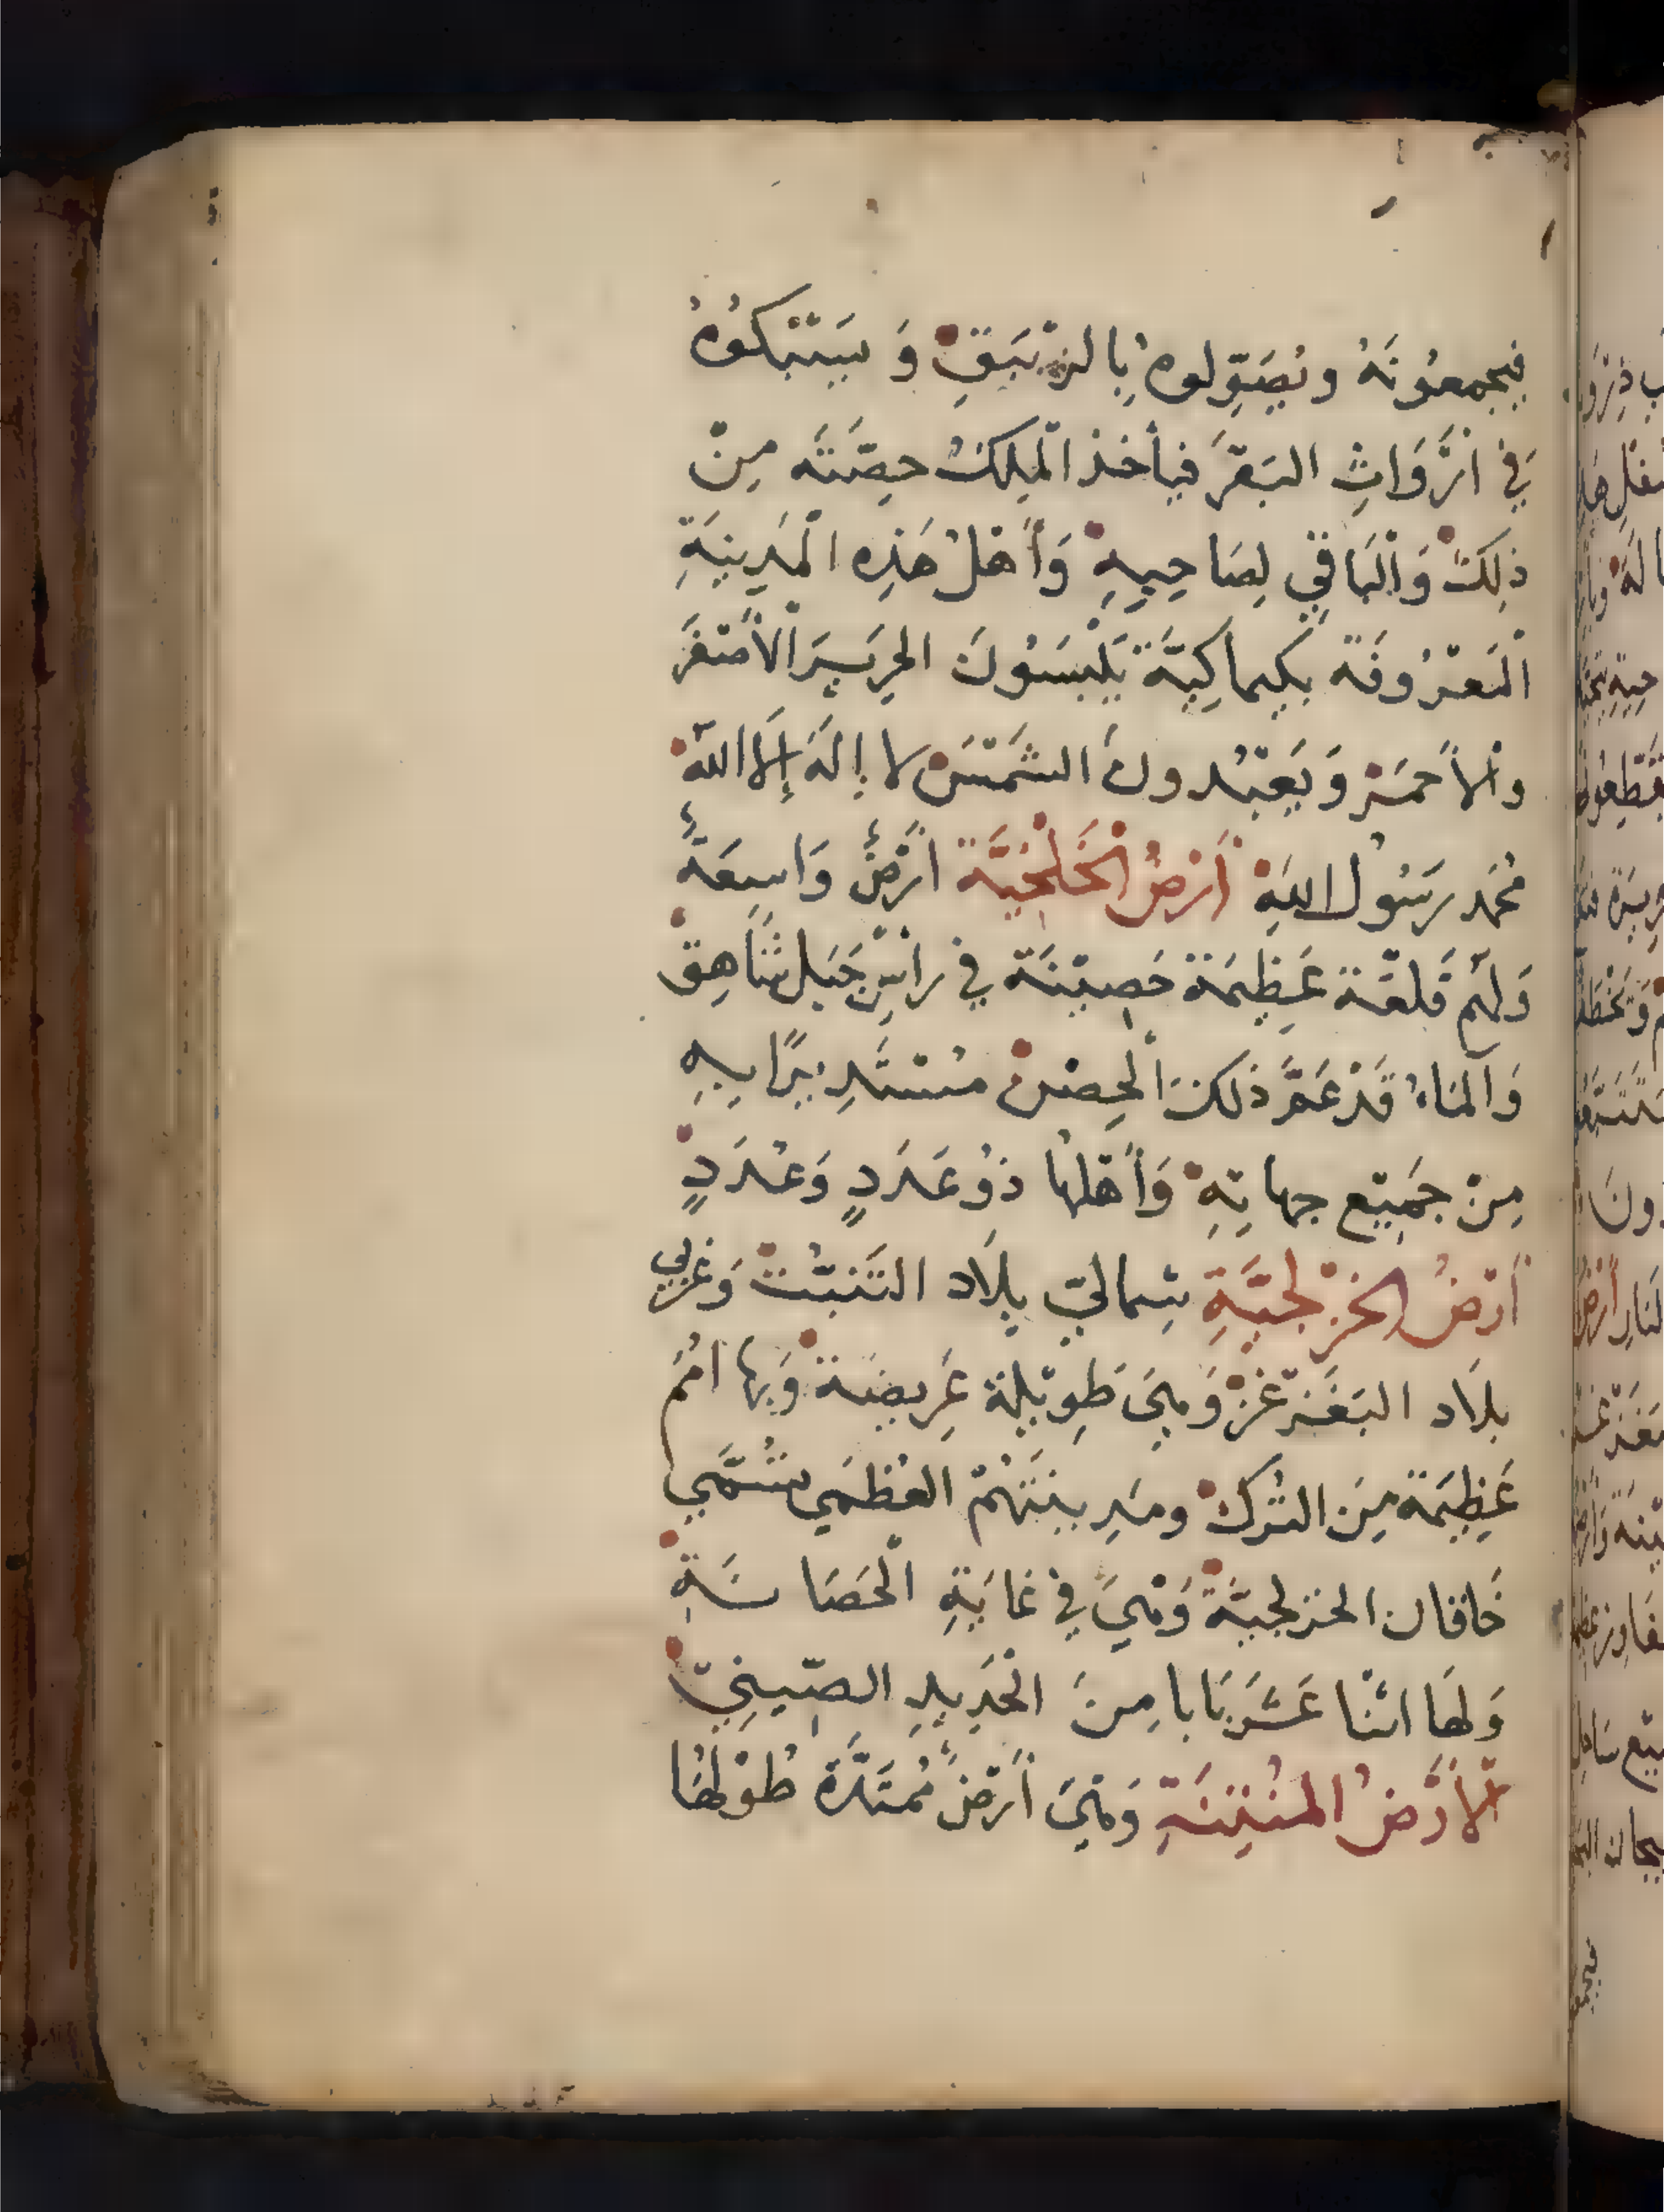 فيجمعُونَهُ ويُصَوِّلوهُ بِالزيْبَقِ وَ يَسْبُكُوُهُ
فِي ارْوَاثِ البَقَر فيأخذ المِلكُ حِصَّتَه مِنْ
ذلِكْ وَالْبَاقِي لِصَاحِبِهِ وَأَهْلْ هَذِه الْمَدِينَةِ
الْمَعْرُوفَة بكيماكِيَّة يَلْبَسُونَ الحَرِيرَ الأصْفَرَ
والأحمَرْ وَيَعْبُدونَ الشَّمْسَ لا إِلَهَ إِلَّا اللّه
مُحَمد رَسُولُ اللهِ أَرْضُ الْخَلْخِيَّة أَرْضٌ وَاسِعَةٌ
وَلَهُم قَلعَة عَظِيمَة حَصِيْنَة فِي راسِ جَبَل شَاهِقْ
وَالمَاءُ قَدْ عَمَّ ذلكَ الْحِصْنْ مُسْتَدِيرًا بِهِ
مِنْ جَمِيْع جِهاتِهِ وَأَهْلهَا ذوُ عَدَدٍ وَعُدَدٍ
أَرْضُ الخَزْلجيَّةِ شِمالِيّ بِلَاد التَّبَّتْ وَغَرْبِي
بلَاد البَغَزْغَزْ وَهِيَ طَوِيْلَة عَرِيضَة وَبِها امَم
عَظِيمَة مِنَ التُركْ ومَدِينَتَهُمْ العُظمَي تُسَمَّي
خَاقان الخزلجيَّة وَهْيَ فِي غَايَةِ الْحَصَا نَةِ
وَلهَا اثْنَا عَشَرَ بَابا مِنَ الْحَدِيدِ الصِّينِيّ
الأَرْضُ المُنْتِنَةِ وَهْيَ أَرْضٌ مُمْتَدَّة طُوْلهَا